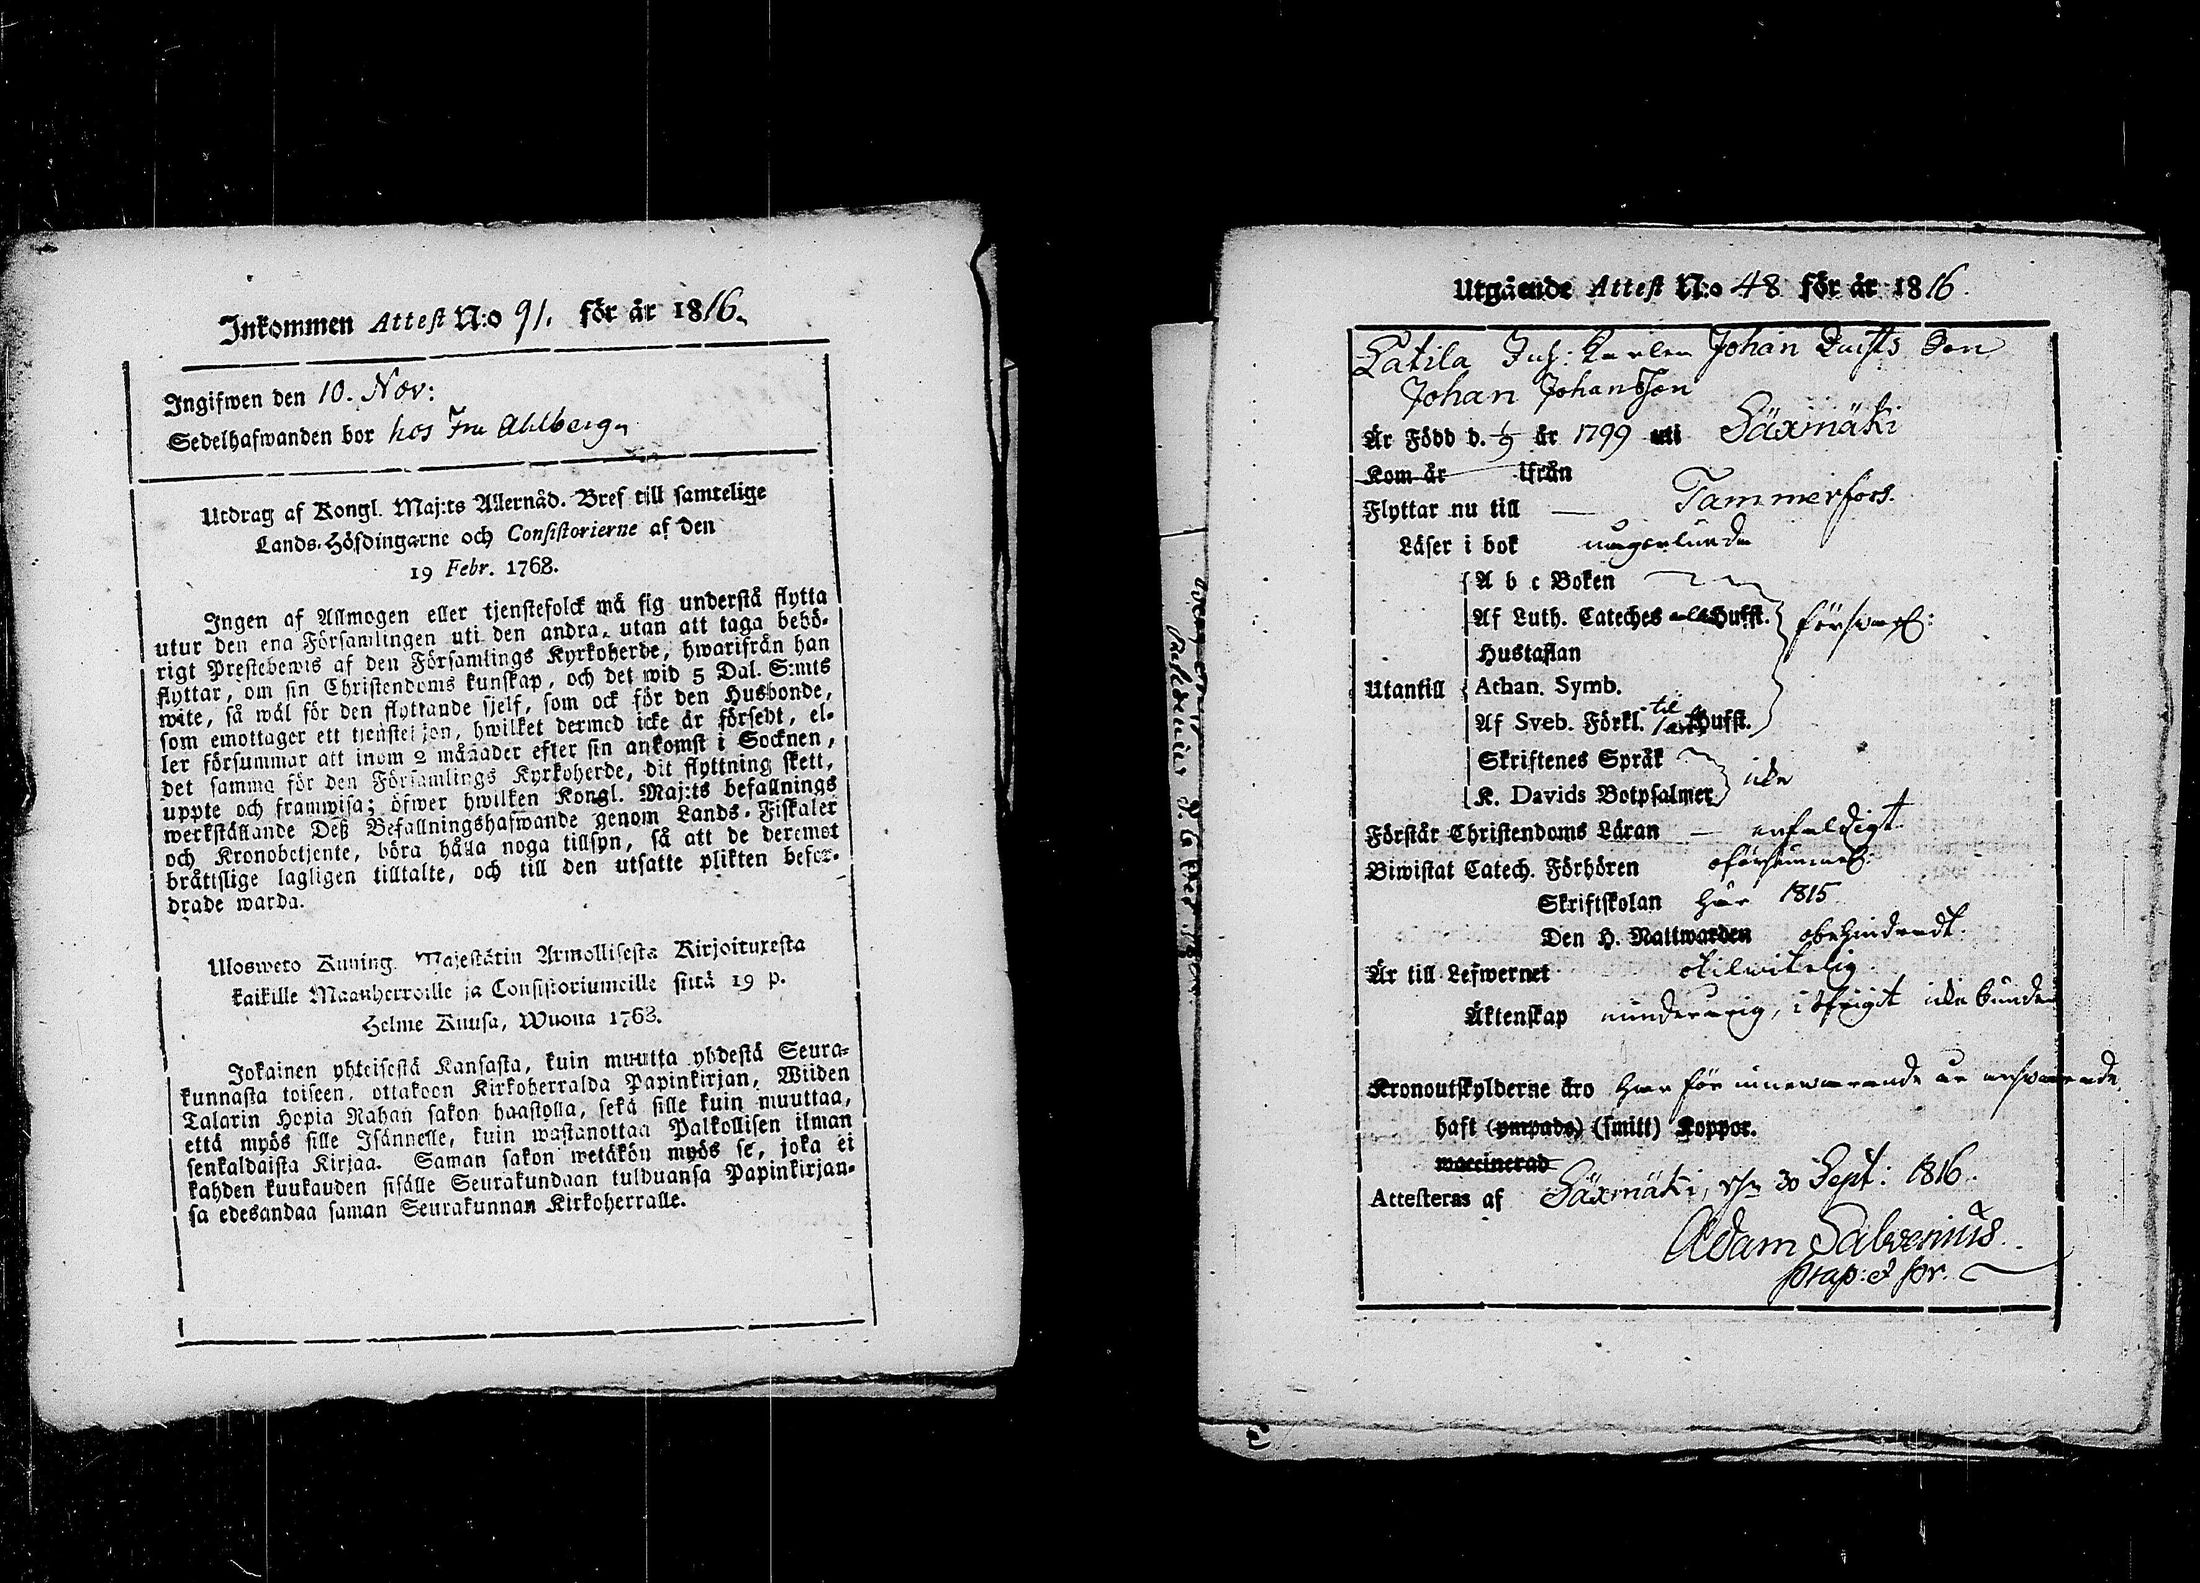 Inkommen Attest N:o 91. för år 1816.
Ingifwen den 10. Nov:
Sedelhafwanden bor hos Fru Ahlberg
Utdrag af Kongl. Maj:ts Allernåd. Bref till samtelige
Lands-Höfdingarne och Consistorierne af den
19 Febr. 1768.
Ingen af Allmogen eller tjenstefolck må sig understå flytta
utur den ena Församlingen uti den andra, utan att taga behö-
rigt Prestebewis af den Församlings Kyrkoherde, hwarifrån han
flyttar, om sin Christendoms kunskap, och det wid 5 Dal. S:mts
wite, så wäl för den flyttande sjelf, som ock för den Husbonde,
som emottager ett tjenstehjon, hwilket dermed icke är försedt, el-
ler försummar att inom 2 månader efter sin ankomst i Socknen,
det samma för den Församlings Kyrkoherde, dit flyttning skett,
uppte och framwisa; öfwer hwilken Kongl. Maj:ts befallnings
werkställande Deß Befallningshafwande genom Lands-Fiskaler
och Kronobetjente, böra hålla noga tillsyn, så att de deremot
bråttslige lagligen tilltalte, och till den utsatte plikten befor-
drade warda.
Ulosweto Kuning. Majestätin Armollisesta Kirjoituxesta
kaikille Maanherroille ja Consistoriumeille siitä 19 p.
Helme Kuusa, Wuona 1768.
Jokainen yhteisestä Kansasta, kuin muutta yhdestä Seura-
kunnasta toiseen, ottakoon Kirkoherralda Papinkirjan, Wiiden
Talarin Hopia Rahan sakon haastolla, sekä sille kuin muuttaa,
että myös sille Isännelle, kuin wastanottaa Palkollisen ilman
senkaldaista Kirjaa. Saman sakon wetäkön myös se, joka ei
kahden kuukauden sisälle Seurakundaan tulduansa Papinkirjan-
sa edesandaa saman Seurakunnan Kirkoherralle.
Utgående Attest N:o 48 för år 1816.
Latila Inh: Karlen Johan Son
Johan Johansson
Är Född d. 1/9 år 1799 uti Säxmäki
Kom år ifrån
Flyttar nu till — Tammerfors.
Läser i bok någorlunda
A b c Boken
Af Luth. Cateches Hufst. förswarl:
Hustaflan
Utantill Athan. Symb.
Af Sveb. Förkl. til Hufst.
Skriftenes Språk
K. Davids Botpsalmer icke
Förstår Christendoms Läran — enfaldigt
Biwistat Catech. Förhören oförsummel:
Skriftskolan här 1815
Den H. Nattwarden obehindradt.
Är till Lefwernet otilwitelig
Äktenskap minderårig, i öfrigit icke bunden
Kronoutskylderne äro här för innewarande år answarade.
haft (ympade) (smitt) Koppor.
waccinerad
Attesteras af Säxmäki, d. 30 Sept: 1816.
Adam Salvenius.